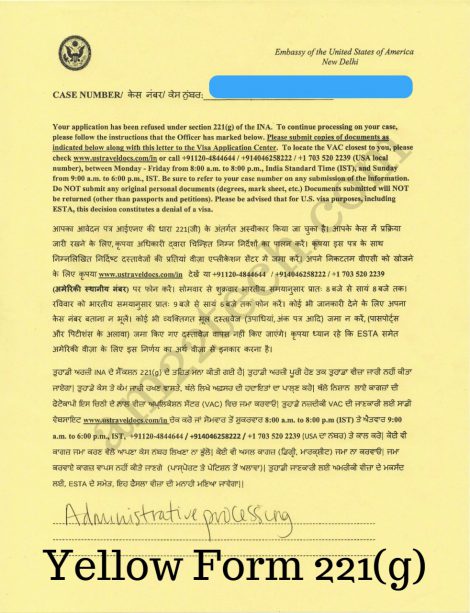 Embassy of the United States of America
New Delhi
CASE NUMBER/ केस नंबर/ ਕੇਸ ਨੰਬਰ:
Your application has been refused under section 221(g) of the INA. To continue processing on your case,
please follow the instructions that the Officer has marked below. Please submit copies of documents as
indicated below along with this letter to the Visa Application Center. To locate the VAC closest to you, please
check www.ustraveldocs.com/in or call +91120-4844644 / +914046258222 / +1 703 520 2239 (USA local
number), between Monday - Friday from 8:00 a.m. to 8:00 p.m., India Standard Time (IST), and Sunday
from 9:00 a.m. to 6:00 p.m., IST. Be sure to refer to your case number on any submission of the information.
Do NOT submit any original personal documents (degrees, mark sheet, etc.) Documents submitted will NOT
be returned (other than passports and petitions). Please be advised that for U.S. visa purposes, including
ESTA, this decision constitutes a denial of a visa.
आपका आवेदन पत्र आईएनए की धारा 221(जी) के अंतर्गत अस्वीकार किया जा चुका है। आपके केस में प्रक्रिया
जारी रखने के लिए, कृपया अधिकारी द्वारा चिन्हित निम्न निर्देशों का पालन करें। कृपया इस पत्र के साथ
निम्नलिखित निर्दिष्ट दस्तावेजों की प्रतियां वीज़ा एप्लीकेशन सेंटर में जमा करें। अपने निकटतम वीएसी को खोजने
के लिए कृपया www.ustraveldocs.com/in देखें या +91120-4844644 / +914046258222 / +1 703 520 2239
(अमेरिकी स्थानीय नंबर) पर फोन करें। सोमवार से शुक्रवार भारतीय समयानुसार प्रातः 8 बजे से सायं 8 बजे तक।
रविवार को भारतीय समयानुसार प्रातः 9 बजे से सायं 6 बजे तक फोन करें। कोई भी जानकारी देने के लिए अपना
केस नंबर बताना न भूलें। कोई भी व्यक्तिगत मूल दस्तावेज (उपाधियां, अंक पत्र आदि) जमा न करें, (पासपोर्ट्स
और पिटीशंस के अलावा) जमा किए गए दस्तावेज वापस नहीं किए जाएंगे। कृपया ध्यान रहे कि ESTA समेत
अमेरिकी वीज़ा के लिए इस निर्णय का अर्थ वीज़ा से इनकार करना है।
ਤੁਹਾਡੀ ਅਰਜ਼ੀ INA ਦੇ ਸੈਕਸ਼ਨ 221(g) ਦੇ ਤਹਿਤ ਮਨਾ ਕੀਤੀ ਗਈ ਹੈ। ਤੁਹਾਡੀ ਅਰਜ਼ੀ ਪੂਰੀ ਹੋਣ ਤਕ ਤੁਹਾਡਾ ਵੀਜ਼ਾ ਜਾਰੀ ਨਹੀਂ ਕੀਤਾ
ਜਾਏਗਾ। ਤੁਹਾਡੇ ਕੇਸ ਤੇ ਕੰਮ ਜਾਰੀ ਰਖਣ ਵਾਸਤੇ, ਥੱਲੇ ਲਿਖੇ ਅਫਸਰ ਦੀ ਹਦਾਇਤਾਂ ਦਾ ਪਾਲਣ ਕਰੋ। ਥੱਲੇ ਨਿਸ਼ਾਨ ਲਾਏ ਕਾਗਜ਼ਾਂ ਦੀ
ਫੋਟੋਕਾਪੀ ਇਸ ਚਿੱਠੀ ਦੇ ਨਾਲ ਵੀਜ਼ਾ ਐਪਲਿਕੇਸ਼ਨ ਸੈਂਟਰ (VAC) ਵਿਚ ਜਮਾ ਕਰਵਾਓ। ਤੁਹਾਡੇ ਨਜ਼ਦੀਕੀ VAC ਦੀ ਜਾਣਕਾਰੀ ਲਈ ਸਾਡੀ
ਵੈਬਸਾਇਟ www.ustraveldocs.com/in ਚੇਕ ਕਰੋ ਜਾਂ ਸੋਮਵਾਰ ਤੋਂ ਸ਼ੁਕਰਵਾਰ 8:00 a.m. to 8:00 p.m (IST) ਤੇ ਐਤਵਾਰ 9:00
a.m. to 6:00 p.m., IST, +91120-4844644 / +914046258222 / +1 703 520 2239 (USA ਦਾ ਨੰਬਰ) ਤੇ ਕਾਲ ਕਰੋ। ਕੋਈ ਵੀ
ਕਾਗਜ਼ ਜਮਾ ਕਰਣ ਵੇਲੇ ਆਪਣਾ ਕੇਸ ਨੰਬਰ ਲਿਖਣਾ ਨਾ ਭੁੱਲੋ। ਕੋਈ ਵੀ ਅਸਲ ਕਾਗਜ਼ (ਡਿਗ੍ਰੀ, ਮਾਰਕਸ਼ੀਟ) ਜਮਾ ਨਾ ਕਰਵਾਓ। ਜਮਾ
ਕਰਵਾਏ ਕਾਗਜ਼ ਵਾਪਸ ਨਹੀਂ ਕੀਤੇ ਜਾਣਗੇ (ਪਾਸਪੋਰਟ ਤੇ ਪੇਟਿਸ਼ਨ ਤੋਂ ਅਲਾਵਾ)। ਤੁਹਾਡੀ ਜਾਣਕਾਰੀ ਲਈ ਅਮਰੀਕੀ ਵੀਜ਼ਾ ਦੇ ਮਕਸਦ
ਲਈ, ESTA ਦੇ ਸਮੇਤ, ਇਹ ਫੈਸਲਾ ਵੀਜ਼ਾ ਦੀ ਮਨਾਹੀ ਮਣਿਆ ਜਾਵੇਗਾ।
Administrative processing
Yellow Form 221(g)